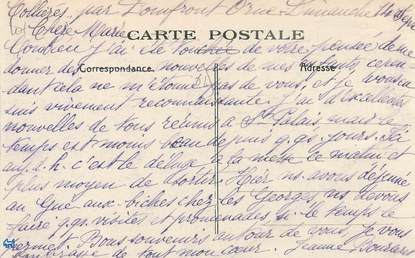 Collières par Domfront Orne Dimanche 14 Sept
Chère Marie
CARTE POSTALE
Combien j'ai été touchée de votre pensée de me
Correspondance
Adresse
donner des nouvelles de mes
cela ne m'étonne pas de vous, et je vous en
suis vivement reconnaissante. J'ai d'excellentes
nouvelles de tous réunis à St Palais mais le
temps est moins beau depuis q.q. jours. Ici
auj. d. h. c'est le déluge à la messe ce matin et
plus moyen de sortir. Hier ns avons déjeuné
au Gué-aux-biches chez les Georges, ns devons
faire q.q. visites et promenades si le temps le
permet. Bons souvenirs autour de vous, je vous
embrasse de tout mon cœur. Jeanne